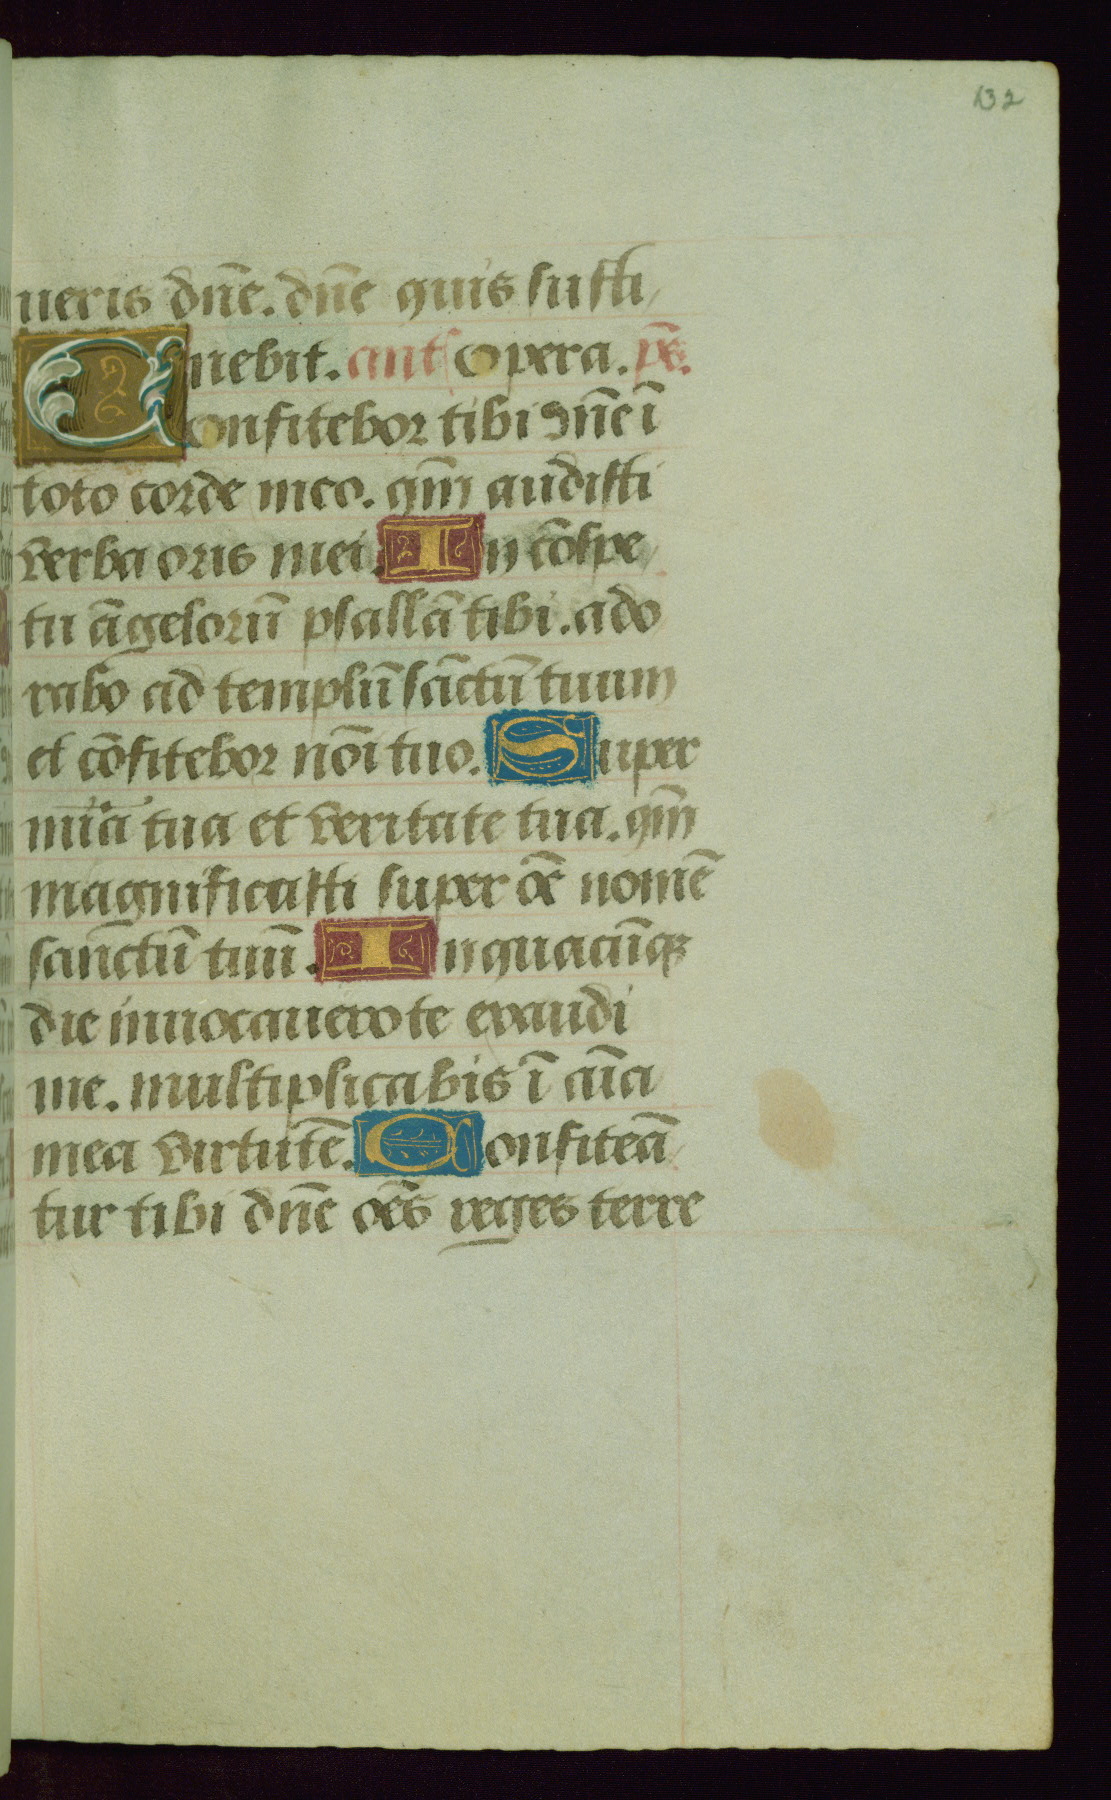 132
ueris dn̄e. dn̄e quis susti
nebit. ant̄ opera. ps̄.
Confitebor tibi dn̄e ī
toto corde meo. qm̄ audisti
verba oris mei. In cōspe
tu āgelorū psallā tibi. ado
rabo ad templū sāctū tuum
et cōfitebor nōi tuo. Super
mīa tua et veritate tua. qm̄
magnificasti super oē nomē
sanctū tuū. In quacūqꝫ
die inuocauero te exaudi
me. multiplicabis ī aīa
mea virtutē. Confiteā
tur tibi dn̄e oēs reges terre